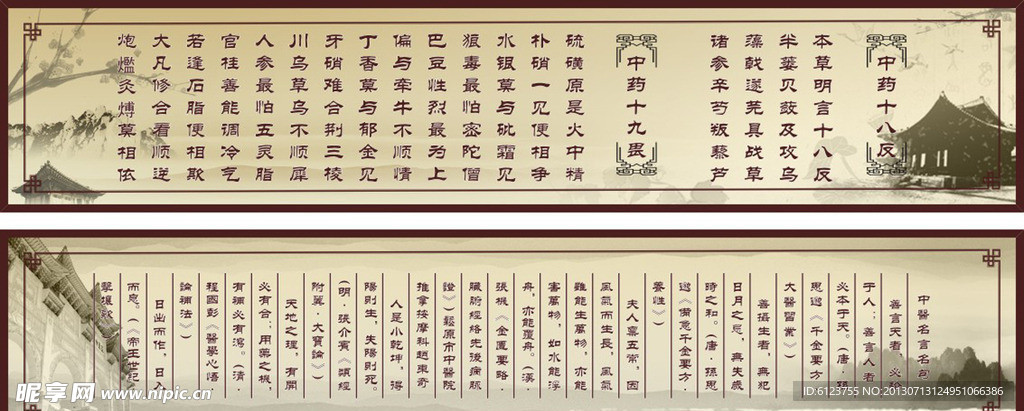 中药十八反
本草明言十八反
半蒌贝蔹及攻乌
藻戟遂芫具战草
诸参辛芍叛藜芦
中药十九畏
硫磺原是火中精
朴硝一见便相争
水银莫与砒霜见
狼毒最怕密陀僧
巴豆性烈最为上
偏与牵牛不顺情
丁香莫与郁金见
牙硝难合荆三棱
川乌草乌不顺犀
人参最怕五灵脂
官桂善能调冷气
若逢石脂便相欺
大凡修合看顺逆
炮爁炙煿莫相依
中醫名言名句
善言天者，必驗
于人；善言人者
必本于天。（唐·孫
思邈《千金要方·
大醫習業》）
善攝生者，無犯
日月之忌，無失歲
時之和。（唐·孫思
邈《備急千金要方·
養性》）
夫人禀五常，因
風氣而生長，風氣
雖能生萬物，亦能
害萬物，如水能浮
舟，亦能覆舟。（漢·
張機《金匱要略·
臟腑經絡先後病脈
證》）鬆原市中醫院
推拿按摩科趙東奇
人是小乾坤，得
陽則生，失陽則死。
（明·張介賓《類經
附翼·大寶論》）
天地之理，有開
必有合；用藥之機，
有補必有瀉。（清·
程國彭《醫學心悟·
論補法》）
日出而作，日入
而息。（《帝王世紀·
擊壤歌
昵享网 www.nipic.cn
ID:6123755 NO:20130713124951066386